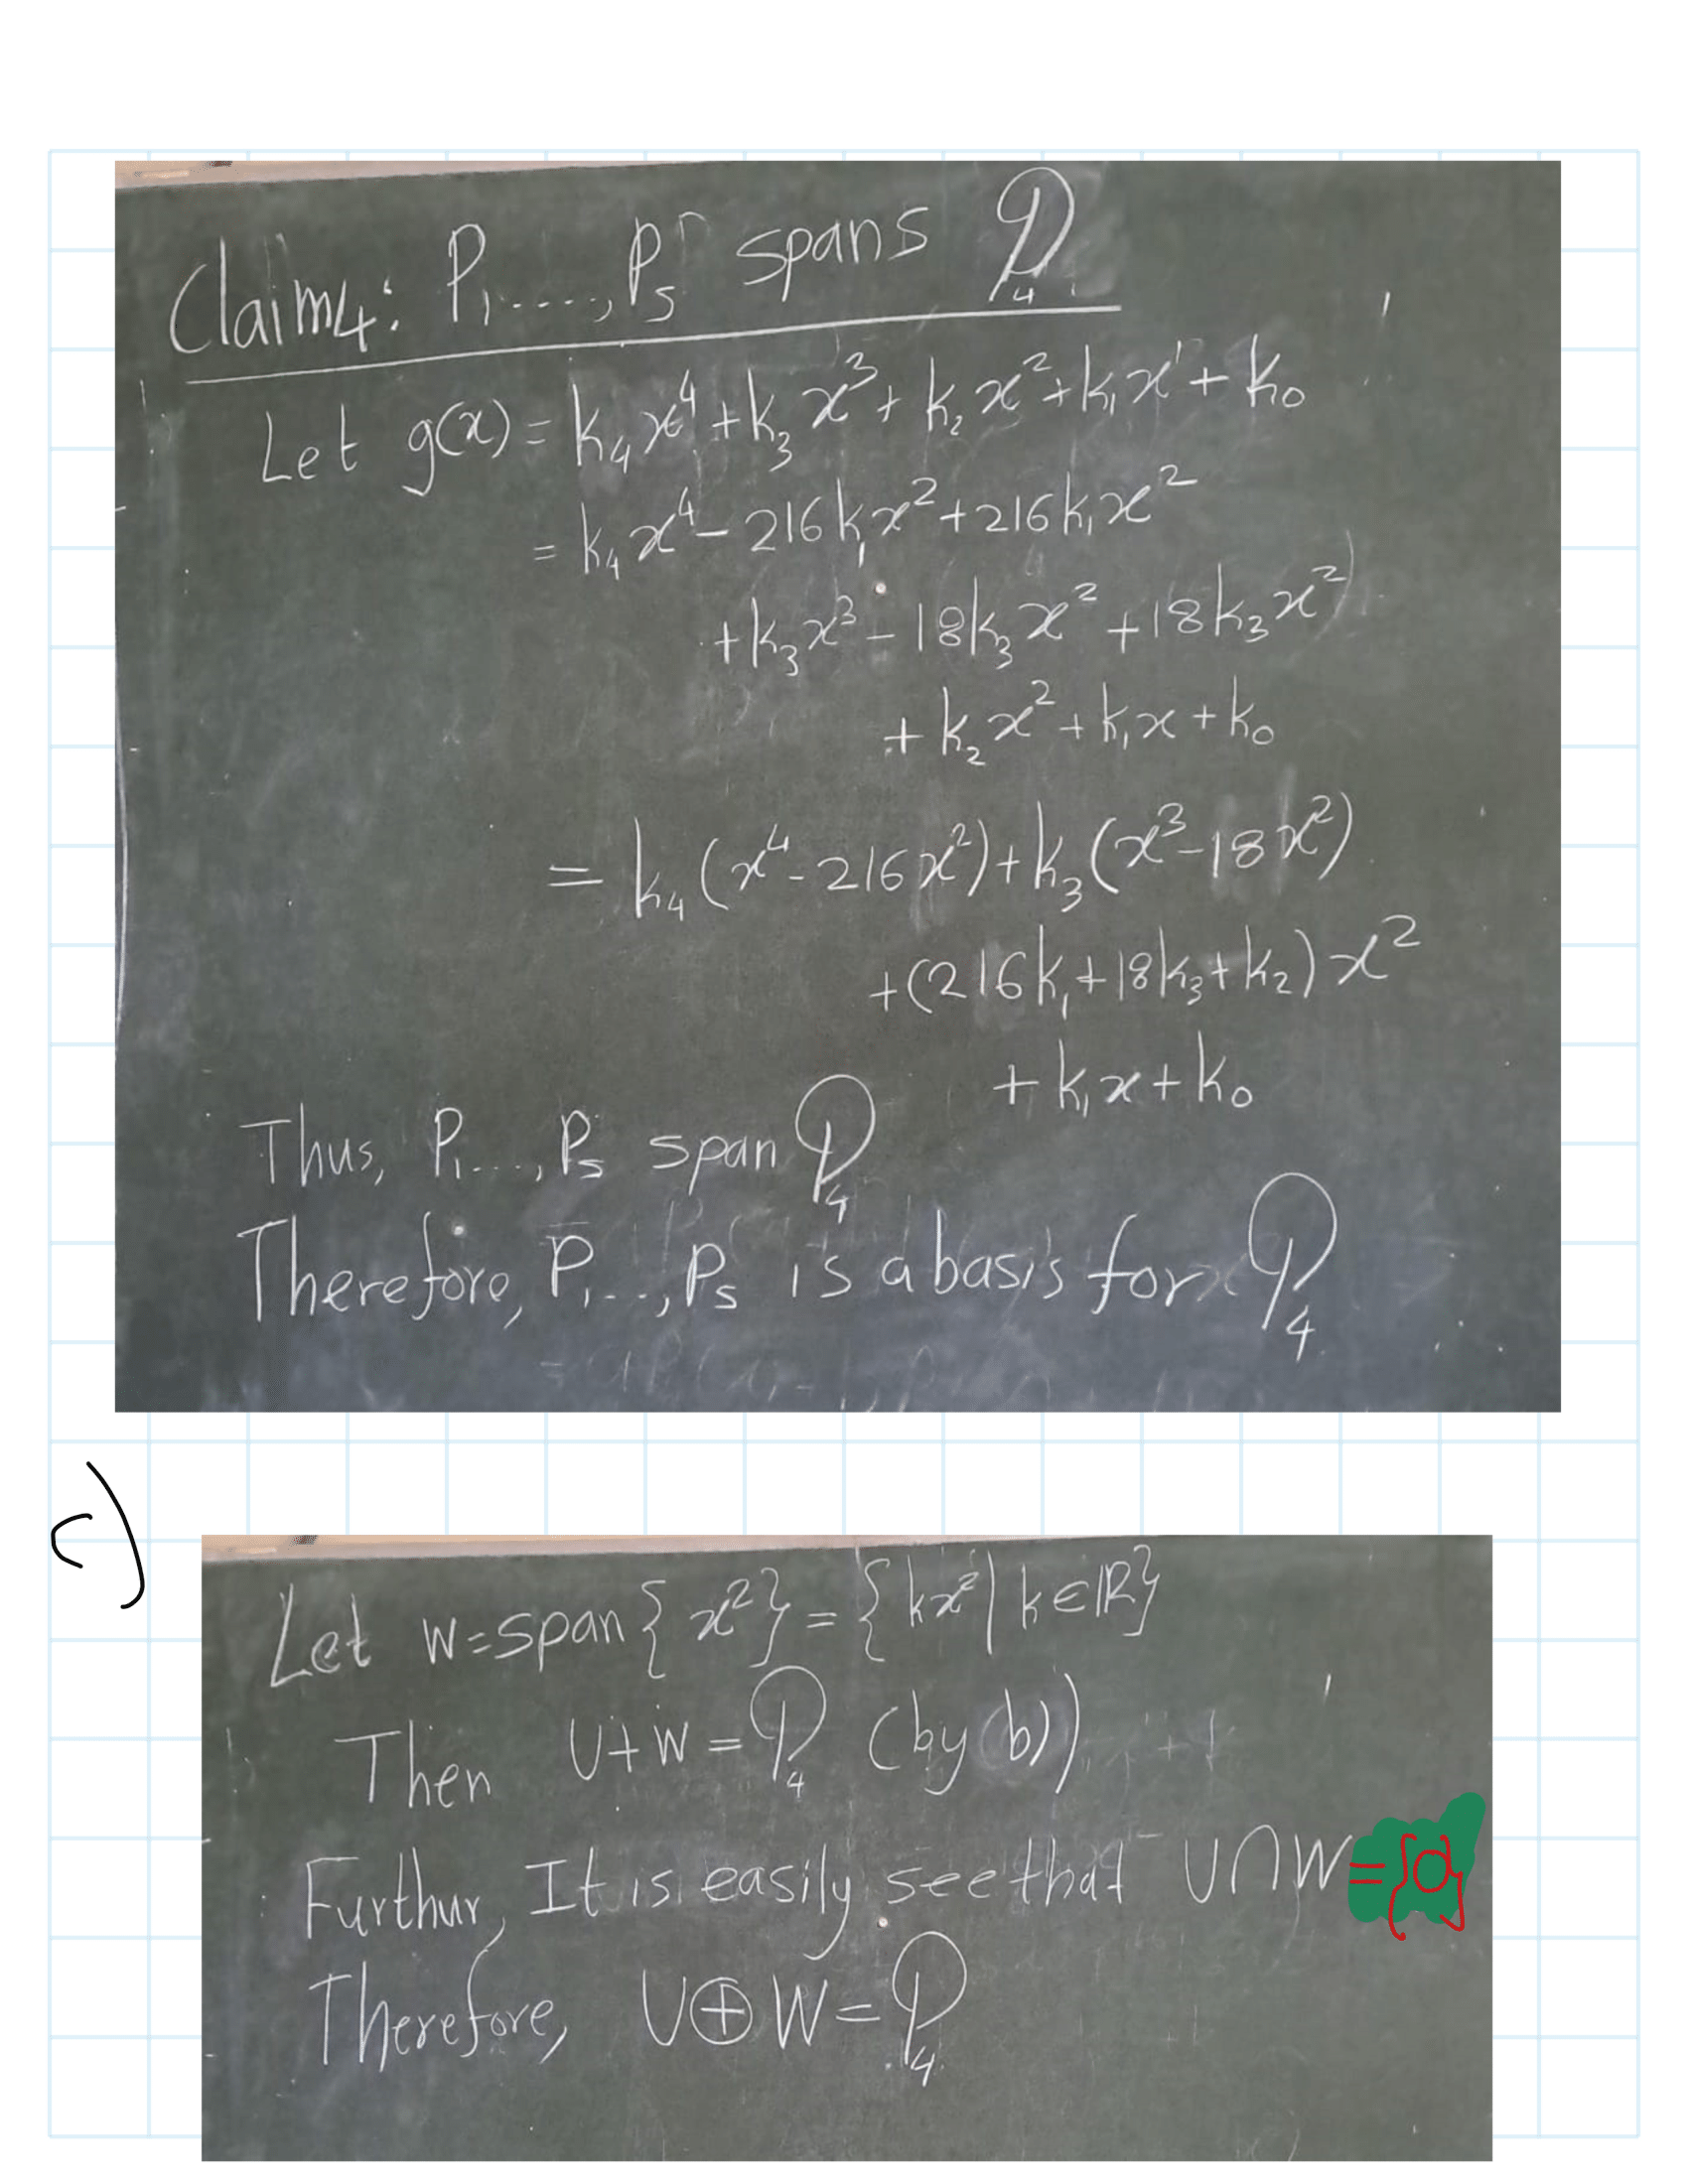 Claim4: P₁....,P₅ spans P₄
Let g(x) = k₄x⁴+k₃x³+k₂x²+k₁x¹+k₀
= k₄x⁴-216k₁x²+216k₁x²
+k₃x³-18k₃x²+18k₃x²
+k₂x²+k₁x+k₀
= k₄(x⁴-216x²)+k₃(x³-18x²)
+(216k₁+18k₃+k₂)x²
+k₁x+k₀
Thus, P₁...,P₅ span P₄
Therefore, P₁...,P₅ is a basis for P₄
c)
Let W=span{x²}={kx²|k∈ℝ}
Then U+W=P₄ (by(b))
Furthur, It is easily see that U∩W={0}
Therefore, U⊕W=P₄